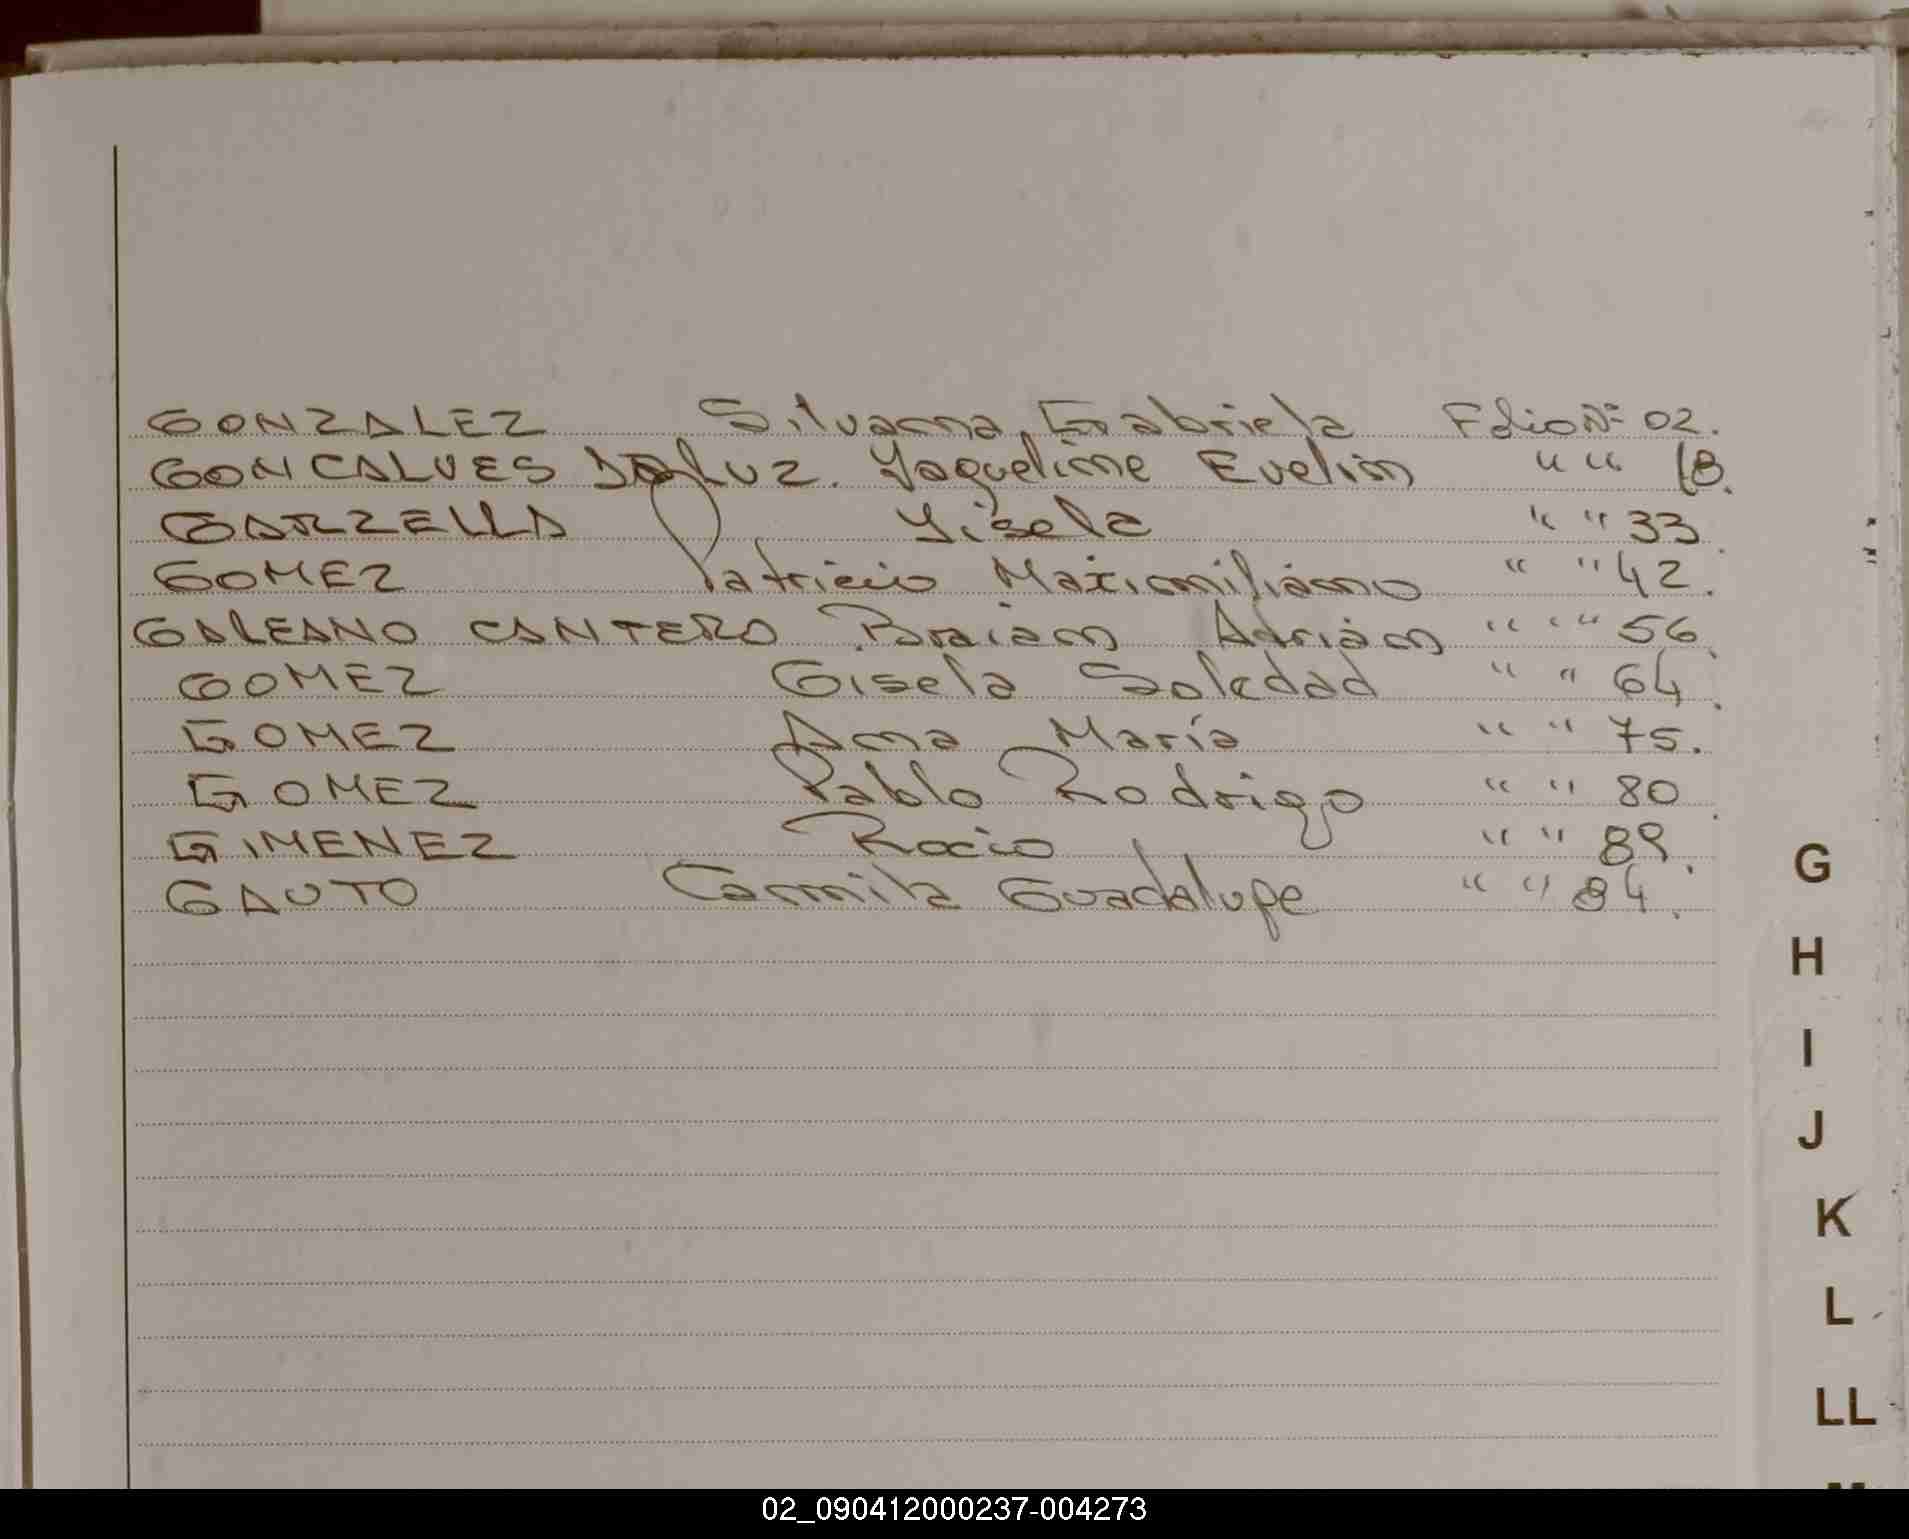 GONZALEZ Silvana Gabriela Folio Nº 02.
GONCALVES DA LUZ. Yaqueline Evelin " " 18.
GARZELLA Yisela " " 33
GOMEZ Patricio Maximiliano " " 42.
GALEANO CANTERO Braian Adrián " " " 56
GOMEZ Gisela Soledad " " 64.
GOMEZ Ana María " " 75.
GOMEZ Pablo Rodrigo " " 80
GIMENEZ Rocio " " 89.
GAUTO Camila Guadalupe " " 84.
G
H
I
J
K
L
LL
02_090412000237-004273